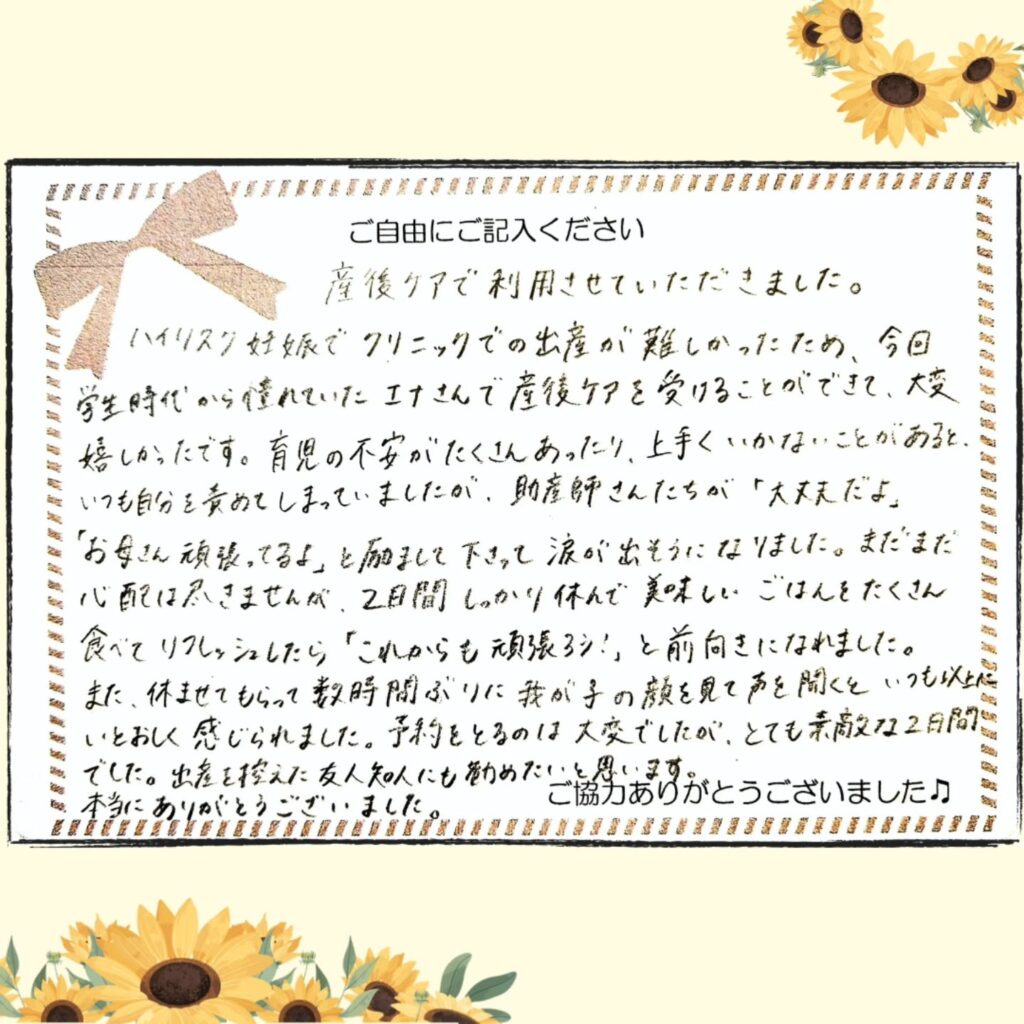 ご自由にご記入ください
産後ケアで利用させていただきました。
ハイリスク妊娠でクリニックでの出産が難しかったため、今回
学生時代から憧れていたエナさんで産後ケアを受けることができて、大変
嬉しかったです。育児の不安がたくさんあったり、上手くいかないことがあると、
いつも自分を責めてしまっていましたが、助産師さんたちが「大丈夫だよ」
「お母さん頑張ってるよ」と励まして下さって涙が出そうになりました。まだまだ
心配は尽きませんが、2日間しっかり休んで美味しいごはんをたくさん
食べてリフレッシュしたら「これからも頑張ろう!」と前向きになれました。
また、休ませてもらって数時間ぶりに我が子の顔を見て声を聞くといつも以上に
いとおしく感じられました。予約をとるのは大変でしたが、とても素敵な2日間
でした。出産を控えた友人知人にも勧めたいと思います。
本当にありがとうございました。
ご協力ありがとうございました♫